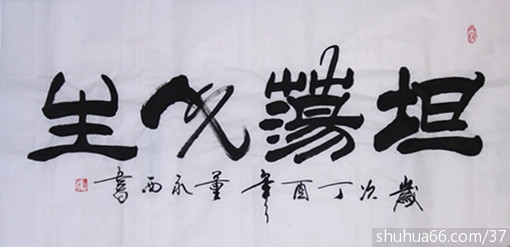 坦蕩人生
歲次丁酉年董永西書
shuhua66.com/37